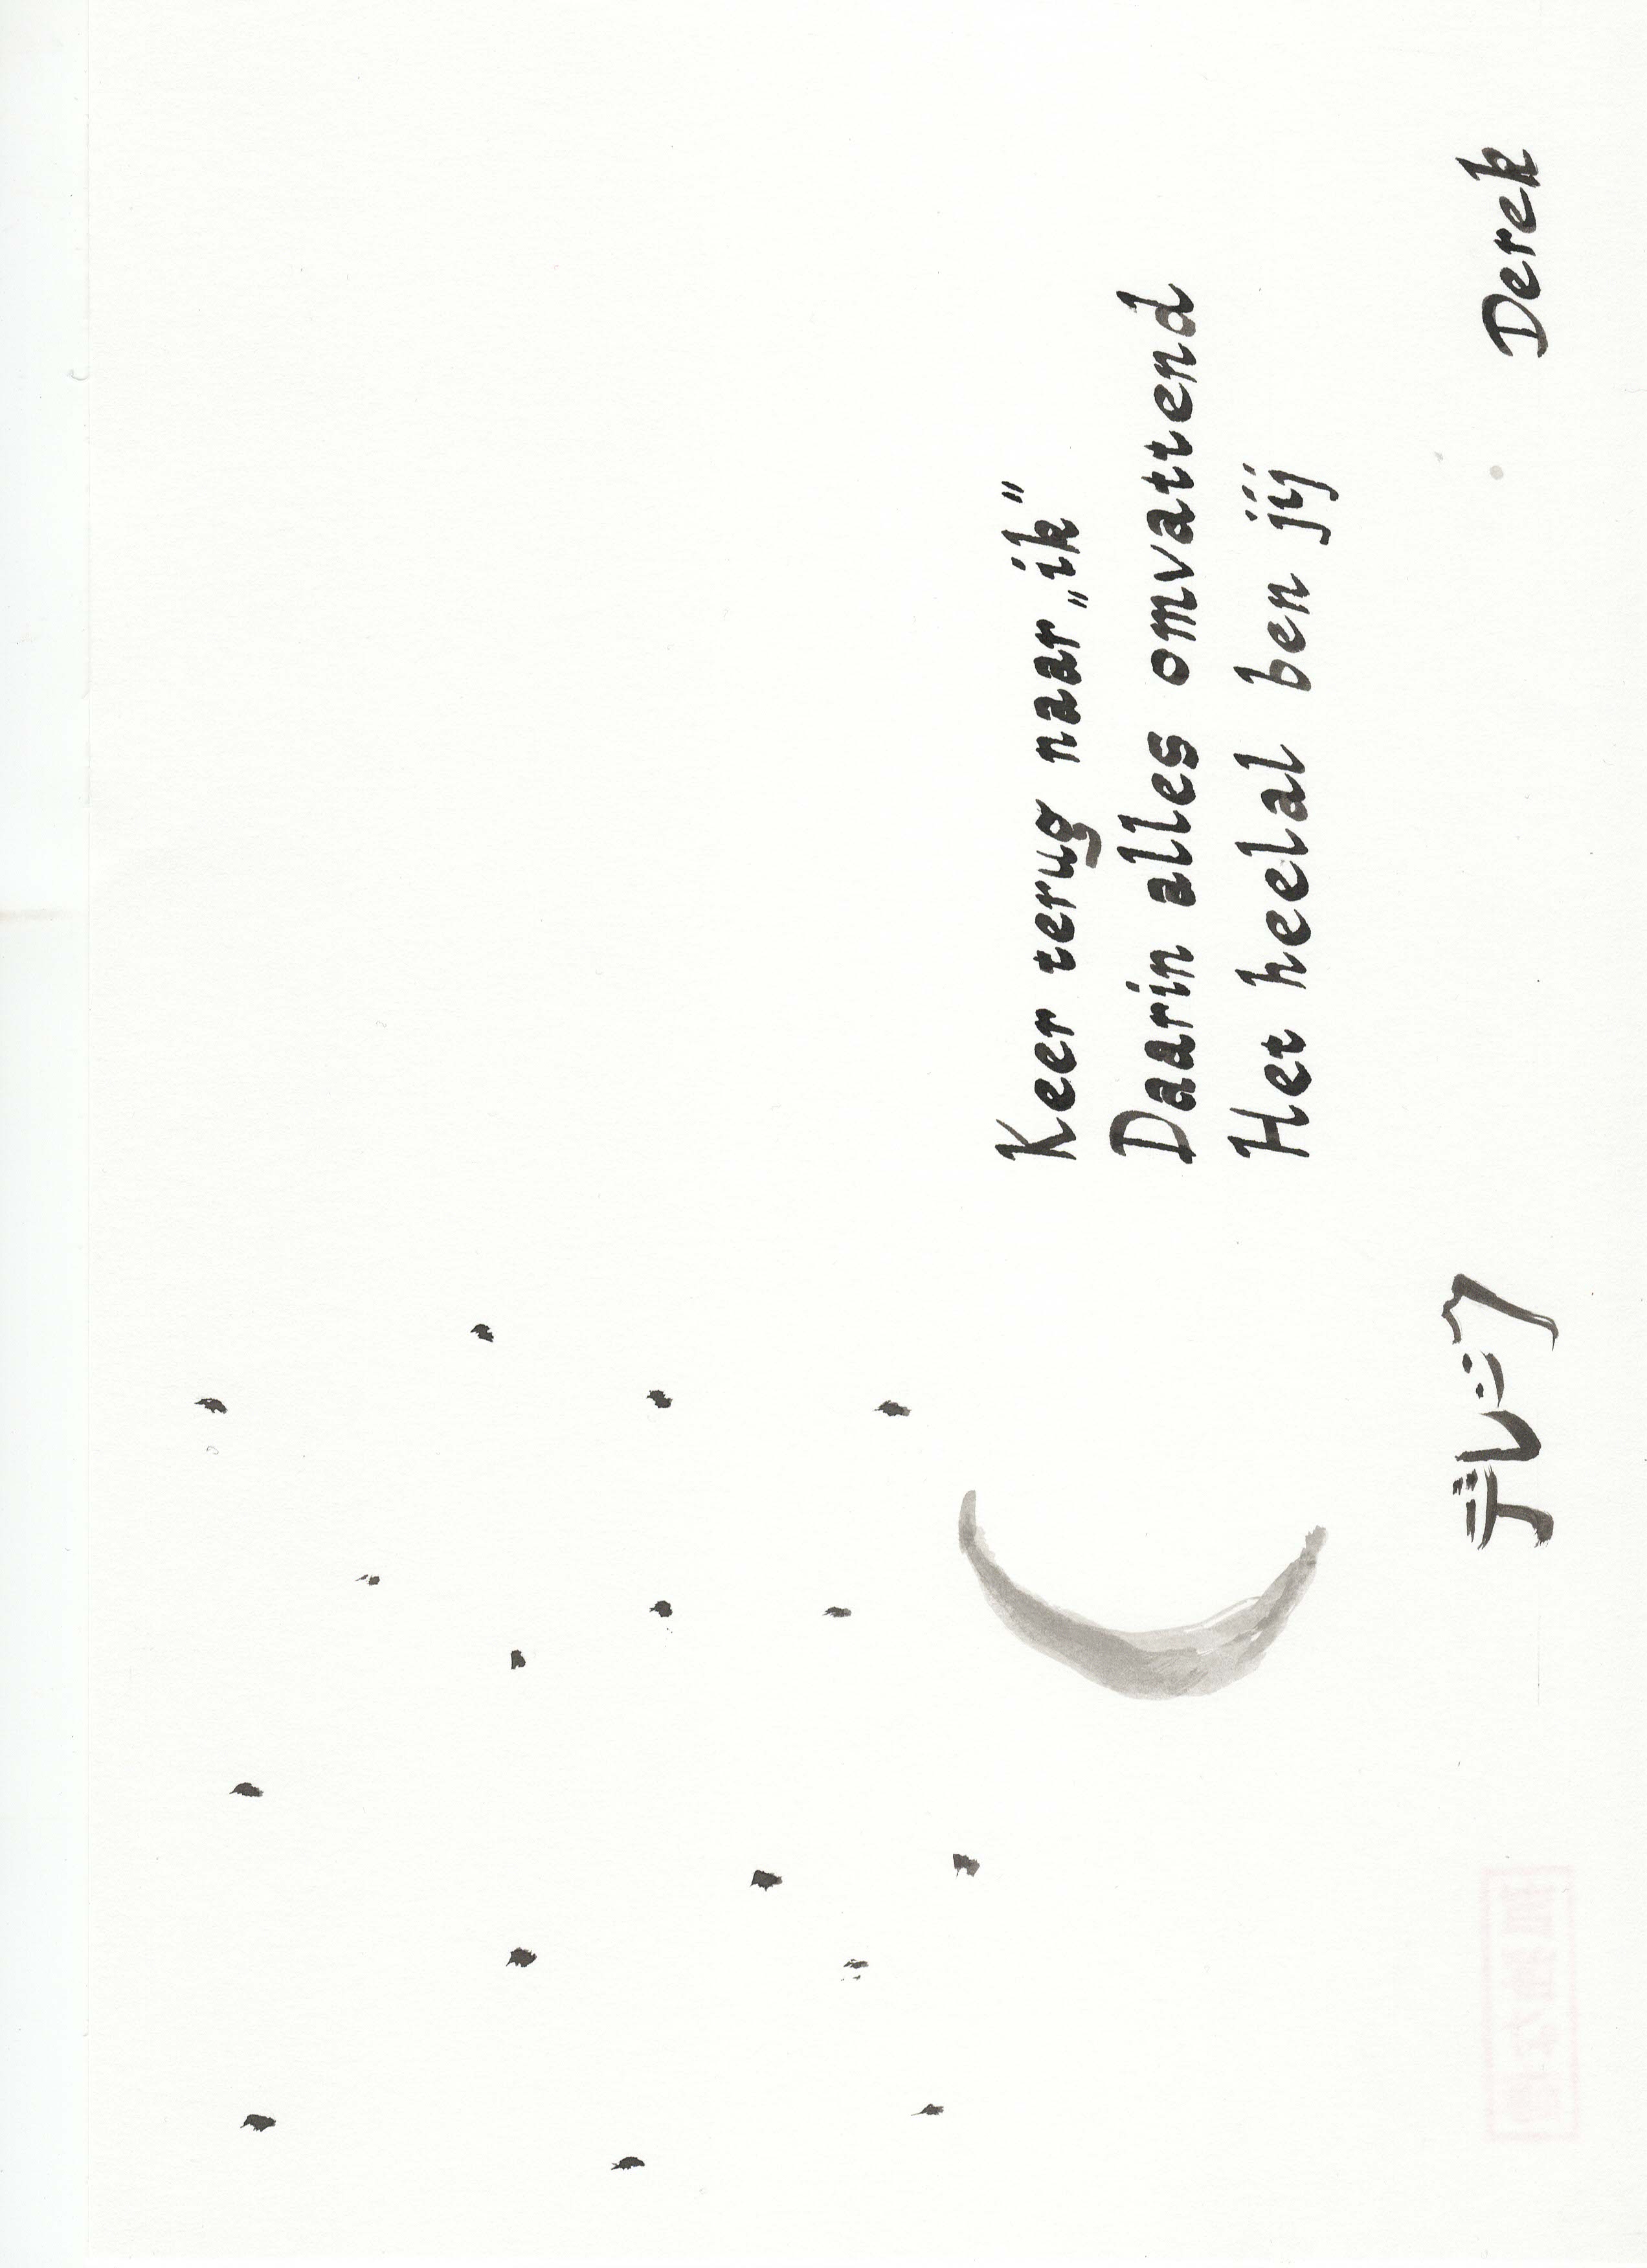 Keer terug naar „ik”
Daarin alles omvattend
Het heelal ben jij
デレック
Derek